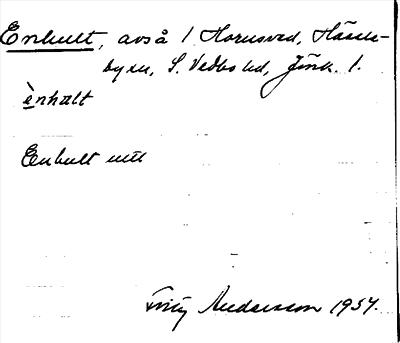 Enhult, avs å / Hornsved, Hässle-
byn, S. Vedbo hd, Jönk. l.
ènhalt
Enhult ntt
Fritz Andersson 1934.